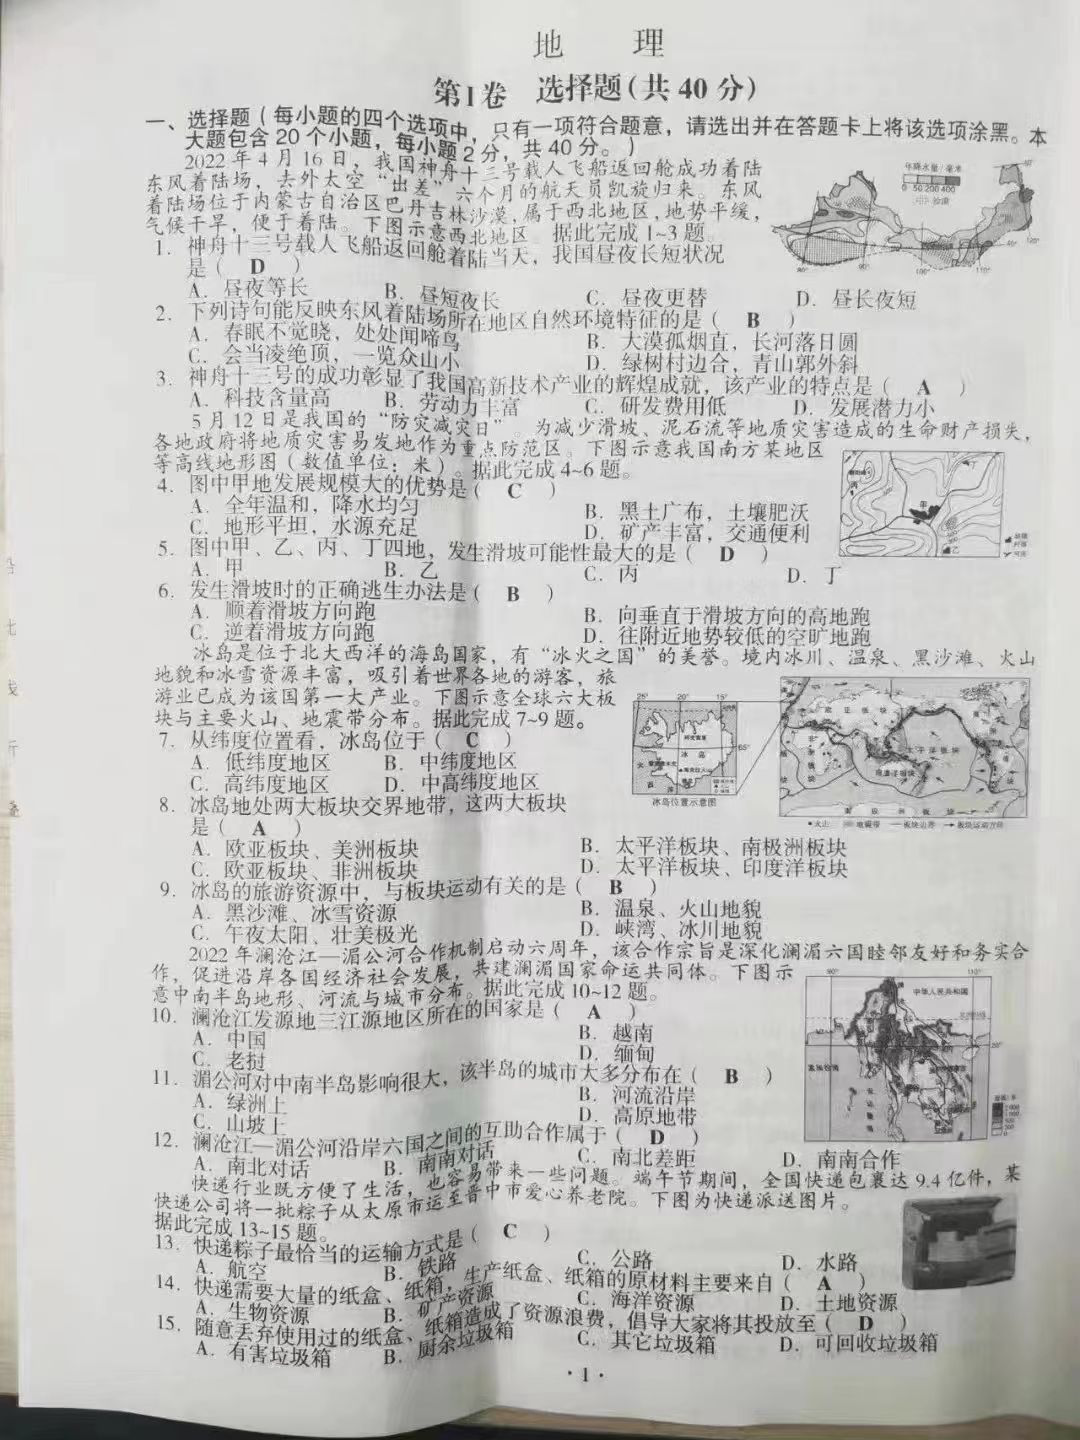 地 理
第Ⅰ卷 选择题(共40分)
一、选择题(每小题的四个选项中,只有一项符合题意,请选出并在答题卡上将该选项涂黑。本
大题包含20个小题,每小题2分,共40分。)
2022年4月16日,我国神舟十三号载人飞船返回舱成功着陆
东风着陆场,去外太空“出差”六个月的航天员凯旋归来。东风
着陆场位于内蒙古自治区巴丹吉林沙漠,属于西北地区,地势平缓,
气候干旱,便于着陆。下图示意西北地区。据此完成1~3题。
年降水量/毫米
0 50 200 400
沙漠
80° 90° 100° 110° 120°
40°
1. 神舟十三号载人飞船返回舱着陆当天,我国昼夜长短状况
是( D )
A. 昼夜等长 B. 昼短夜长 C. 昼夜更替 D. 昼长夜短
2. 下列诗句能反映东风着陆场所在地区自然环境特征的是( B )
A. 春眠不觉晓,处处闻啼鸟 B. 大漠孤烟直,长河落日圆
C. 会当凌绝顶,一览众山小 D. 绿树村边合,青山郭外斜
3. 神舟十三号的成功彰显了我国高新技术产业的辉煌成就,该产业的特点是( A )
A. 科技含量高 B. 劳动力丰富 C. 研发费用低 D. 发展潜力小
5月12日是我国的“防灾减灾日”。为减少滑坡、泥石流等地质灾害造成的生命财产损失,
各地政府将地质灾害易发地作为重点防范区。下图示意我国南方某地区
等高线地形图(数值单位:米)。据此完成4~6题。
丁
丙
甲
乙
4. 图中甲地发展规模大的优势是( C )
A. 全年温和,降水均匀 B. 黑土广布,土壤肥沃
C. 地形平坦,水源充足 D. 矿产丰富,交通便利
5. 图中甲、乙、丙、丁四地,发生滑坡可能性最大的是( D )
A. 甲 B. 乙 C. 丙 D. 丁
6. 发生滑坡时的正确逃生办法是( B )
A. 顺着滑坡方向跑 B. 向垂直于滑坡方向的高地跑
C. 逆着滑坡方向跑 D. 往附近地势较低的空旷地跑
冰岛是位于北大西洋的海岛国家,有“冰火之国”的美誉。境内冰川、温泉、黑沙滩、火山
地貌和冰雪资源丰富,吸引着世界各地的游客,旅
游业已成为该国第一大产业。下图示意全球六大板
块与主要火山、地震带分布。据此完成7~9题。
25° 20° 15°
65°
冰 岛
冰岛位置示意图
太平洋板块
南极洲板块
火山 地震带 板块边界 板块运动方向
7. 从纬度位置看,冰岛位于( C )
A. 低纬度地区 B. 中纬度地区
C. 高纬度地区 D. 中高纬度地区
8. 冰岛地处两大板块交界地带,这两大板块
是( A )
A. 欧亚板块、美洲板块 B. 太平洋板块、南极洲板块
C. 欧亚板块、非洲板块 D. 太平洋板块、印度洋板块
9. 冰岛的旅游资源中,与板块运动有关的是( B )
A. 黑沙滩、冰雪资源 B. 温泉、火山地貌
C. 午夜太阳、壮美极光 D. 峡湾、冰川地貌
2022年澜沧江—湄公河合作机制启动六周年,该合作宗旨是深化澜湄六国睦邻友好和务实合
作,促进沿岸各国经济社会发展,共建澜湄国家命运共同体。下图示
意中南半岛地形、河流与城市分布。据此完成10~12题。
90° 110°
中华人民共和国
20°
10. 澜沧江发源地三江源地区所在的国家是( A )
A. 中国 B. 越南
C. 老挝 D. 缅甸
11. 湄公河对中南半岛影响很大,该半岛的城市大多分布在( B )
A. 绿洲上 B. 河流沿岸
C. 山坡上 D. 高原地带
12. 澜沧江—湄公河沿岸六国之间的互助合作属于( D )
A. 南北对话 B. 南南对话 C. 南北差距 D. 南南合作
快递行业既方便了生活,也容易带来一些问题。端午节期间,全国快递包裹达9.4亿件,某
快递公司将一批粽子从太原市运至晋中市爱心养老院。下图为快递派送图片。
据此完成13~15题。
13. 快递粽子最恰当的运输方式是( C )
A. 航空 B. 铁路 C. 公路 D. 水路
14. 快递需要大量的纸盒、纸箱,生产纸盒、纸箱的原材料主要来自( A )
A. 生物资源 B. 矿产资源 C. 海洋资源 D. 土地资源
15. 随意丢弃使用过的纸盒、纸箱造成了资源浪费,倡导大家将其投放至( D )
A. 有害垃圾箱 B. 厨余垃圾箱 C. 其它垃圾箱 D. 可回收垃圾箱
· 1 ·